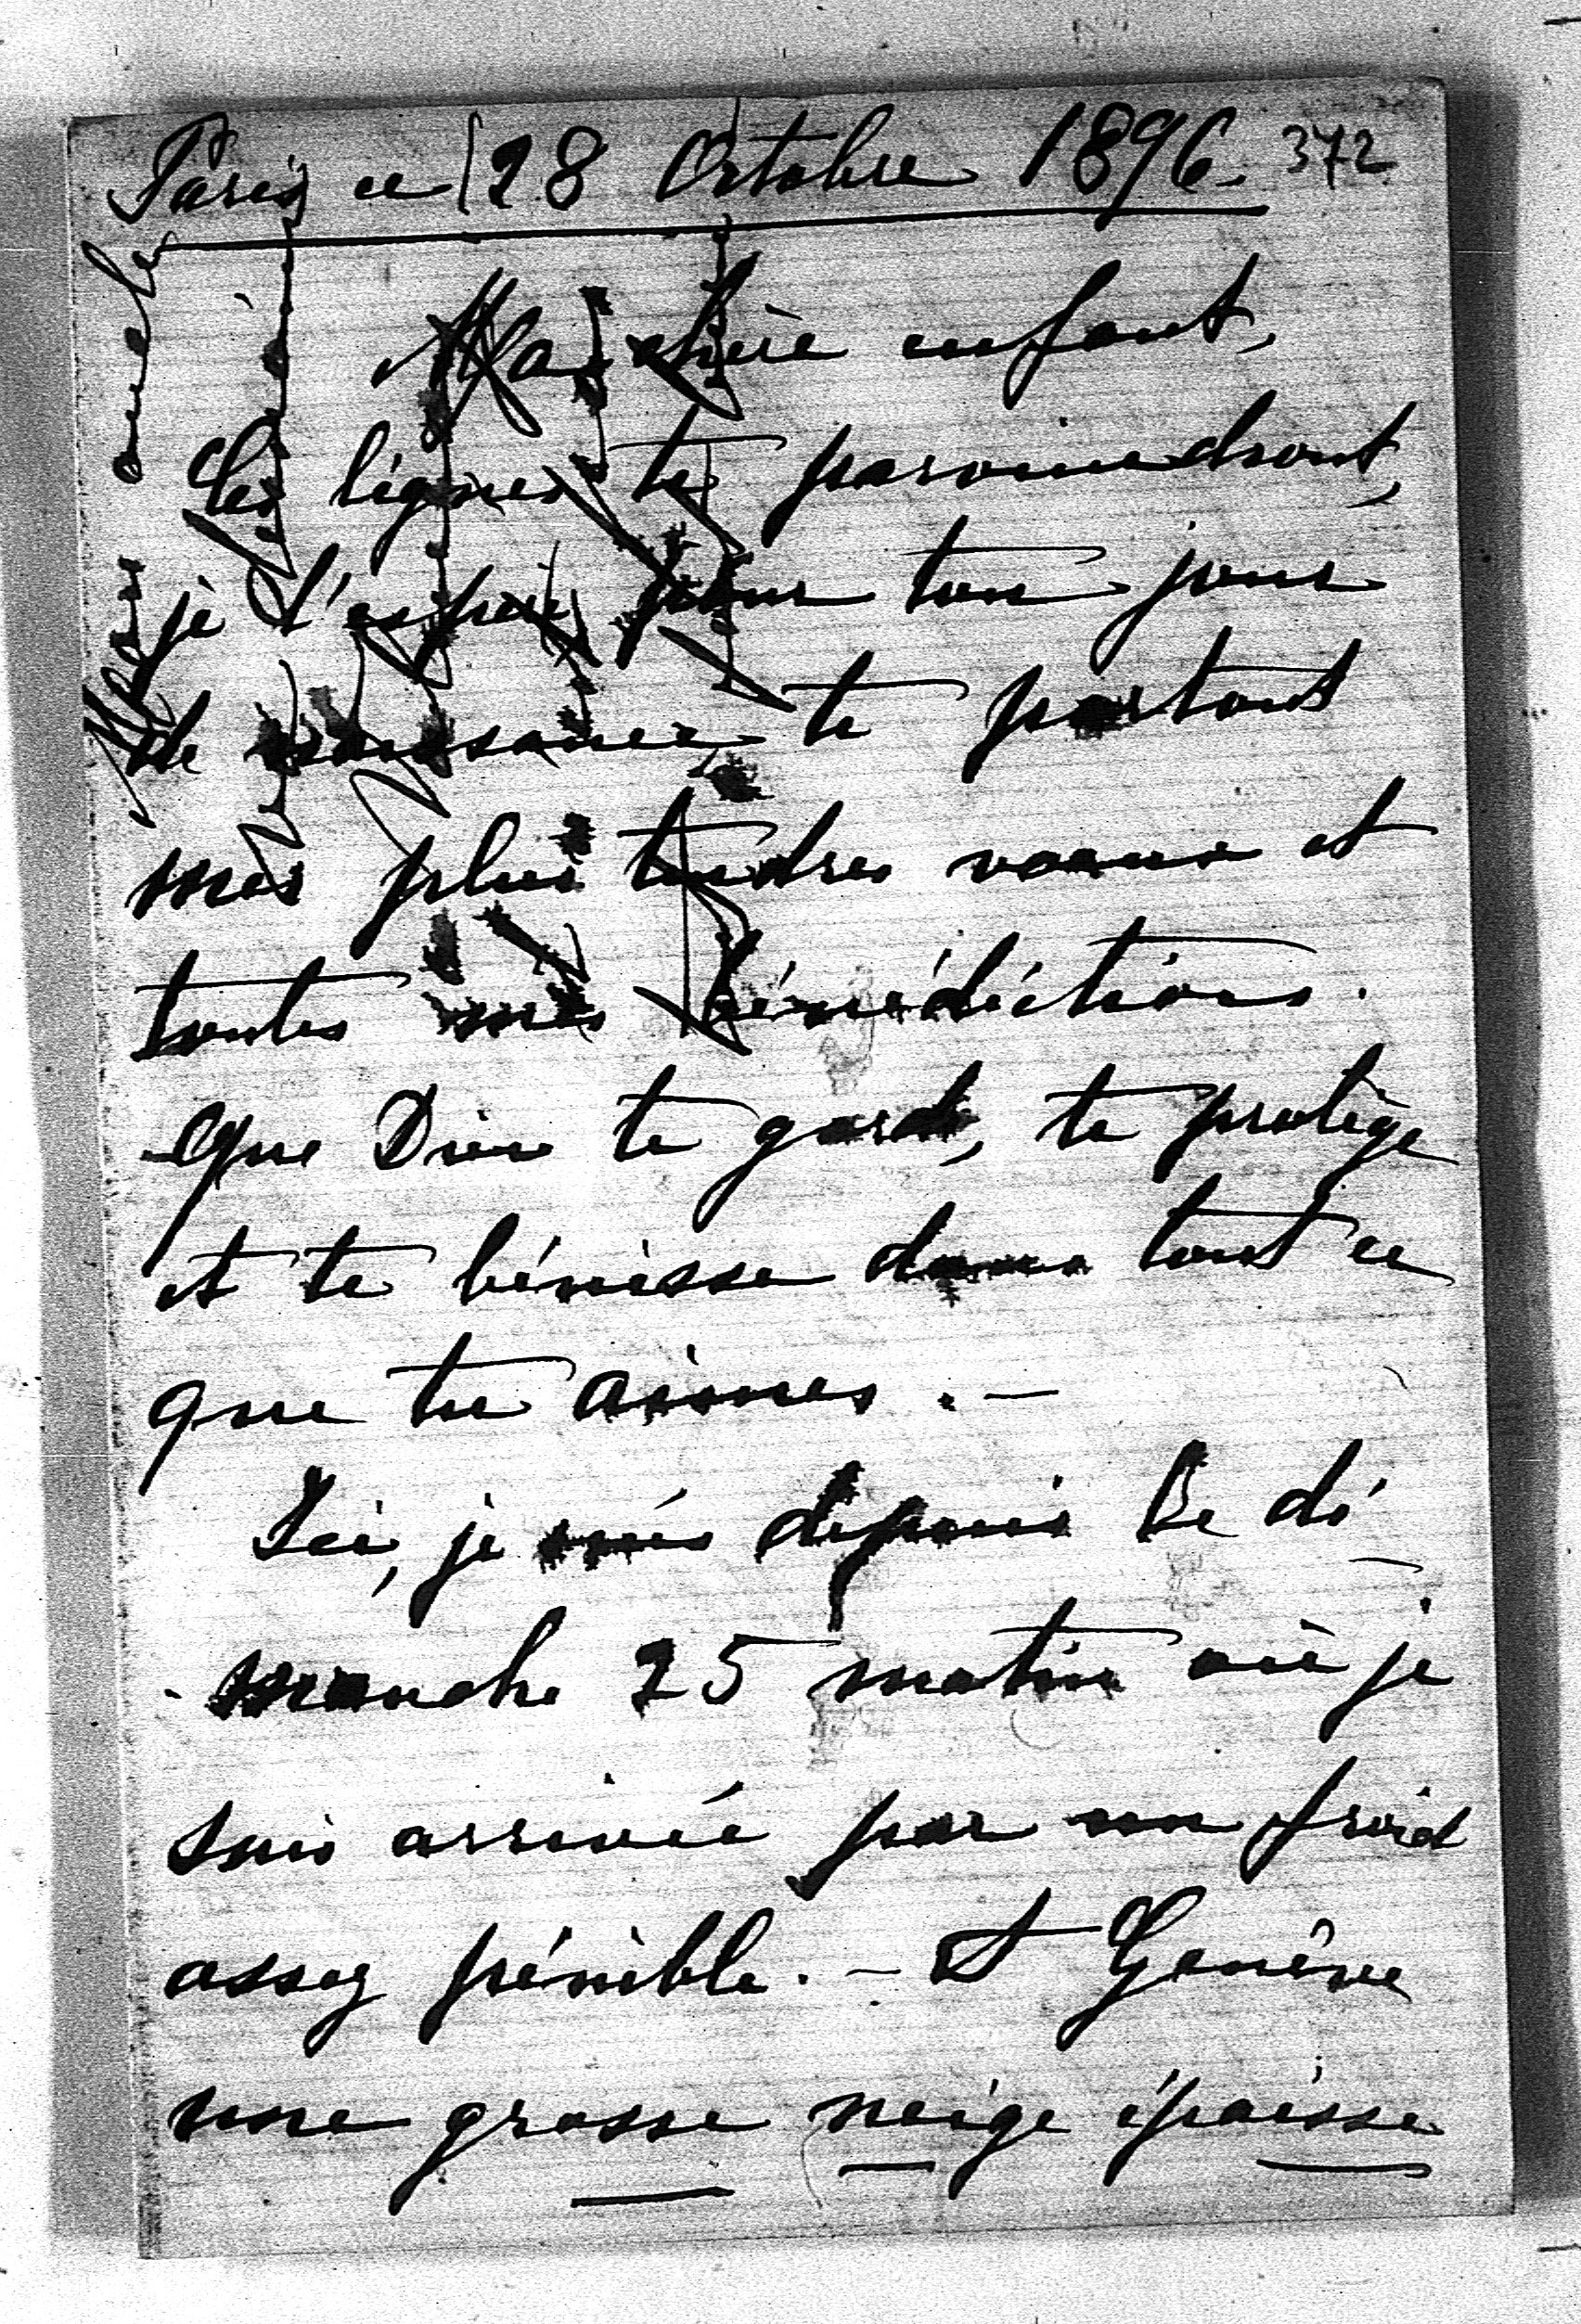 Paris ce 28 Octobre 1896. 372
Ma chère enfant,
Ces lignes te parviendront,
je l'espère pour ton jour
de naissance, te portant
mes plus tendres vœux et
toutes mes bénédictions.
Que Dieu te garde, te protège
et te bénisse dans tout ce
que tu aimes. —
Ici, je suis depuis le di-
-manche 25 matin où je
suis arrivée par un froid
assez pénible. — A Genève
une grosse neige épaisse